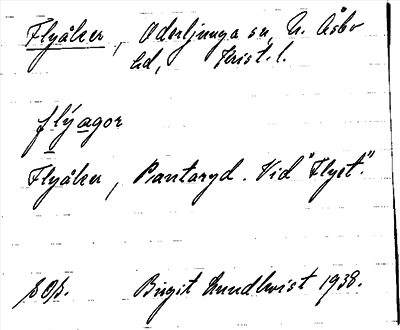 Flyåker, Oderljunga sn, N. Åsbo
hd, Krist. l.
flýagor
Flyåker, Pantaryd. Vid "Flyet".
s. 
Birgit Lundkvist 1938.